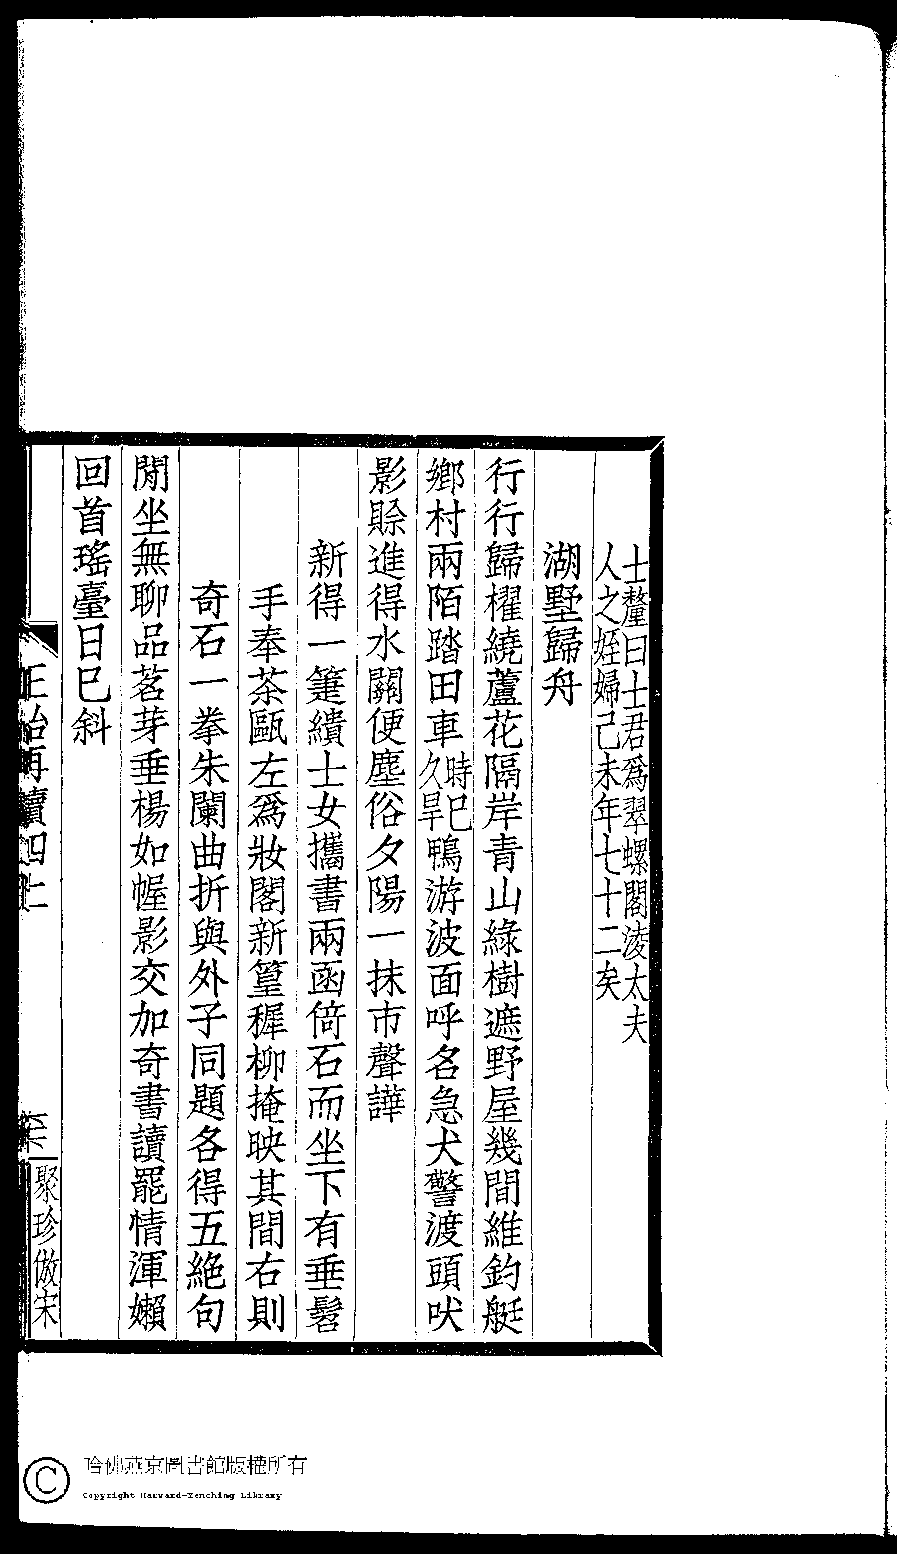 士釐曰士君爲翠螺閣淩太夫
人之姪婦己未年七十二矣
湖墅歸舟
行行歸櫂繞蘆花隔岸青山綠樹遮野屋幾間維釣艇
鄉村兩陌踏田車時巳久旱鴨游波面呼名急犬警渡頭吠
影賒進得水關便塵俗夕陽一抹市聲譁
新得一箑繢士女攜書兩函倚石而坐下有垂髫
手奉茶甌左爲妝閣新篁穉柳掩映其間右則
奇石一拳朱闌曲折與外子同題各得五絶句
閒坐無聊品茗芽垂楊如幄影交加奇書讀罷情渾嬾
回首瑤臺日巳斜
正始再續四上
聚珍倣宋
哈佛燕京圖書館版權所有
Copyright Harvard-Yenching Library